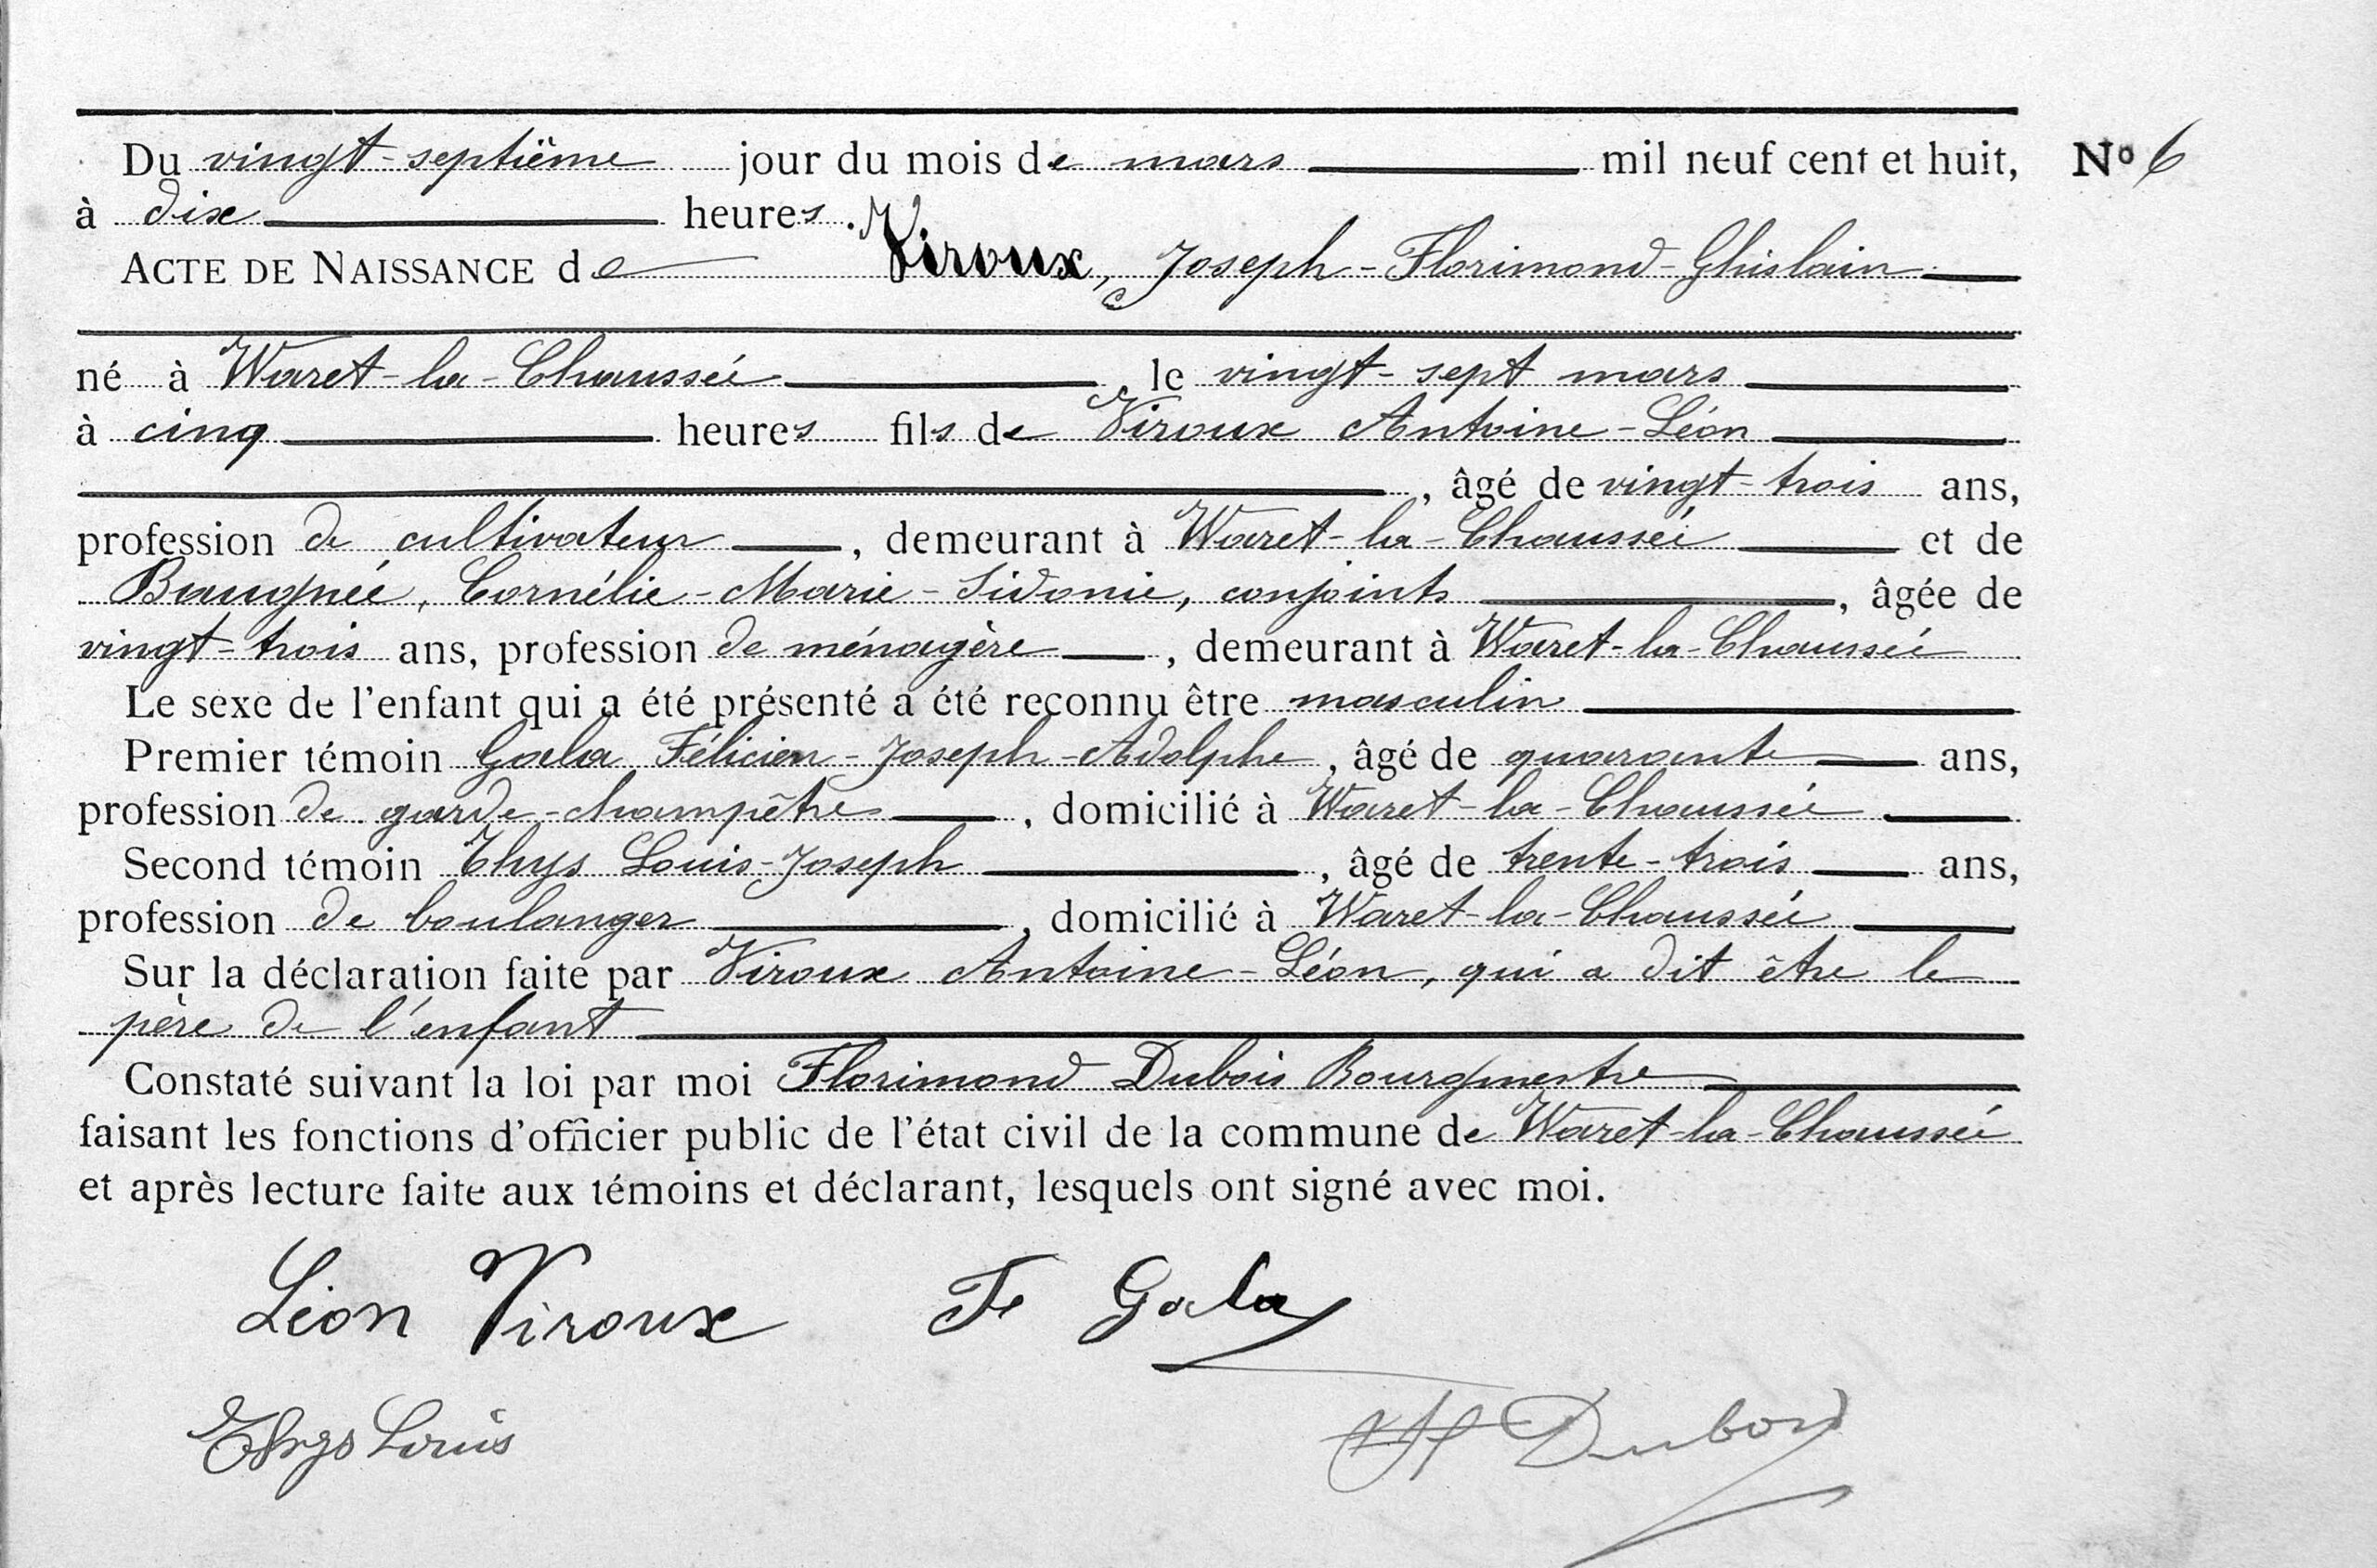 Du vingt-septième jour du mois de mars mil neuf cent et huit, N° 6
à dix heures.
ACTE DE NAISSANCE de Viroux, Joseph-Florimond-Ghislain
né à Waret-la-Chaussée, le vingt-sept mars
à cinq heures fils de Viroux Antoine-Léon
, âgé de vingt-trois ans,
profession de cultivateur, demeurant à Waret-la-Chaussée et de
Baugnée, Cornélie-Marie-Sidonie, conjoints, âgée de
vingt-trois ans, profession de ménagère, demeurant à Waret-la-Chaussée
Le sexe de l'enfant qui a été présenté a été reconnu être masculin
Premier témoin Gala Félicien-Joseph-Adolphe, âgé de quarante ans,
profession de garde-champêtre, domicilié à Waret-la-Chaussée
Second témoin Thys Louis-Joseph, âgé de trente-trois ans,
profession de boulanger, domicilié à Waret-la-Chaussée
Sur la déclaration faite par Viroux Antoine-Léon, qui a dit être le
père de l'enfant
Constaté suivant la loi par moi Florimond Dubois Bourgmestre
faisant les fonctions d'officier public de l'état civil de la commune de Waret-la-Chaussée
et après lecture faite aux témoins et déclarant, lesquels ont signé avec moi.
Léon Viroux Fe Gala
Thys Louis Dubois